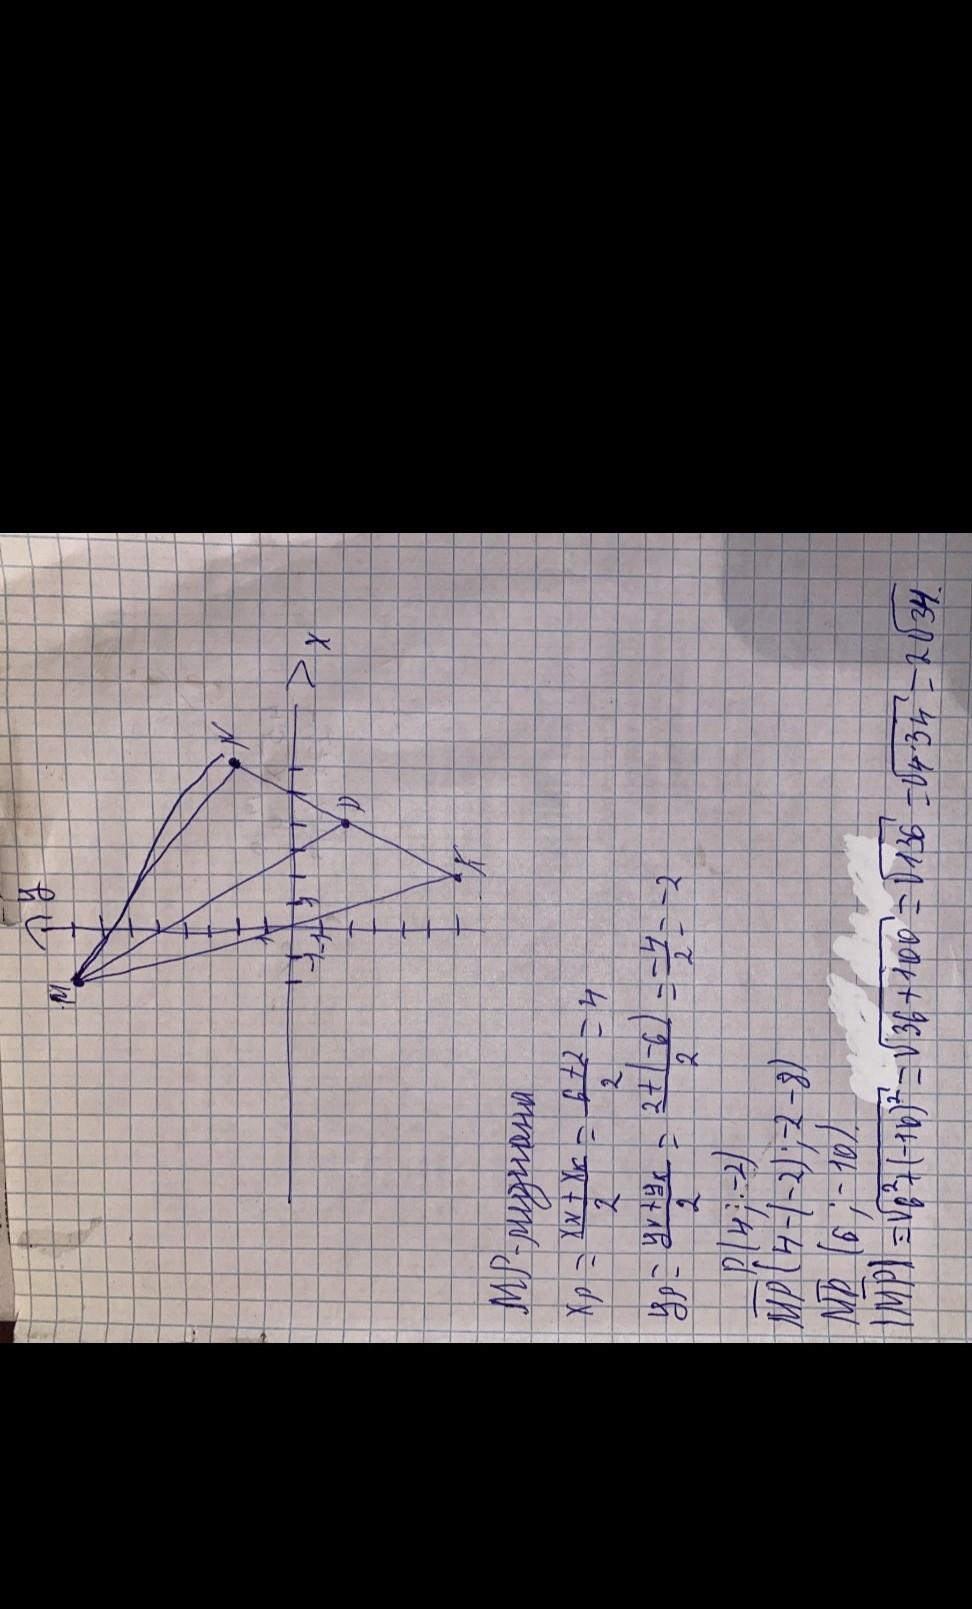 y
M
N
1
1
X
-1
-1
P
K
MP - медиана
xp = xN + xK / 2 = 6 + 2 / 2 = 4
yp = yN + yK / 2 = 2 + (-6) / 2 = -4 / 2 = -2
P(4; -2)
MP (4 - (-2); -2 - 8)
MP (6; -10)
|MP| = √6² + (-10)² = √36 + 100 = √136 = √4·34 = 2√34.